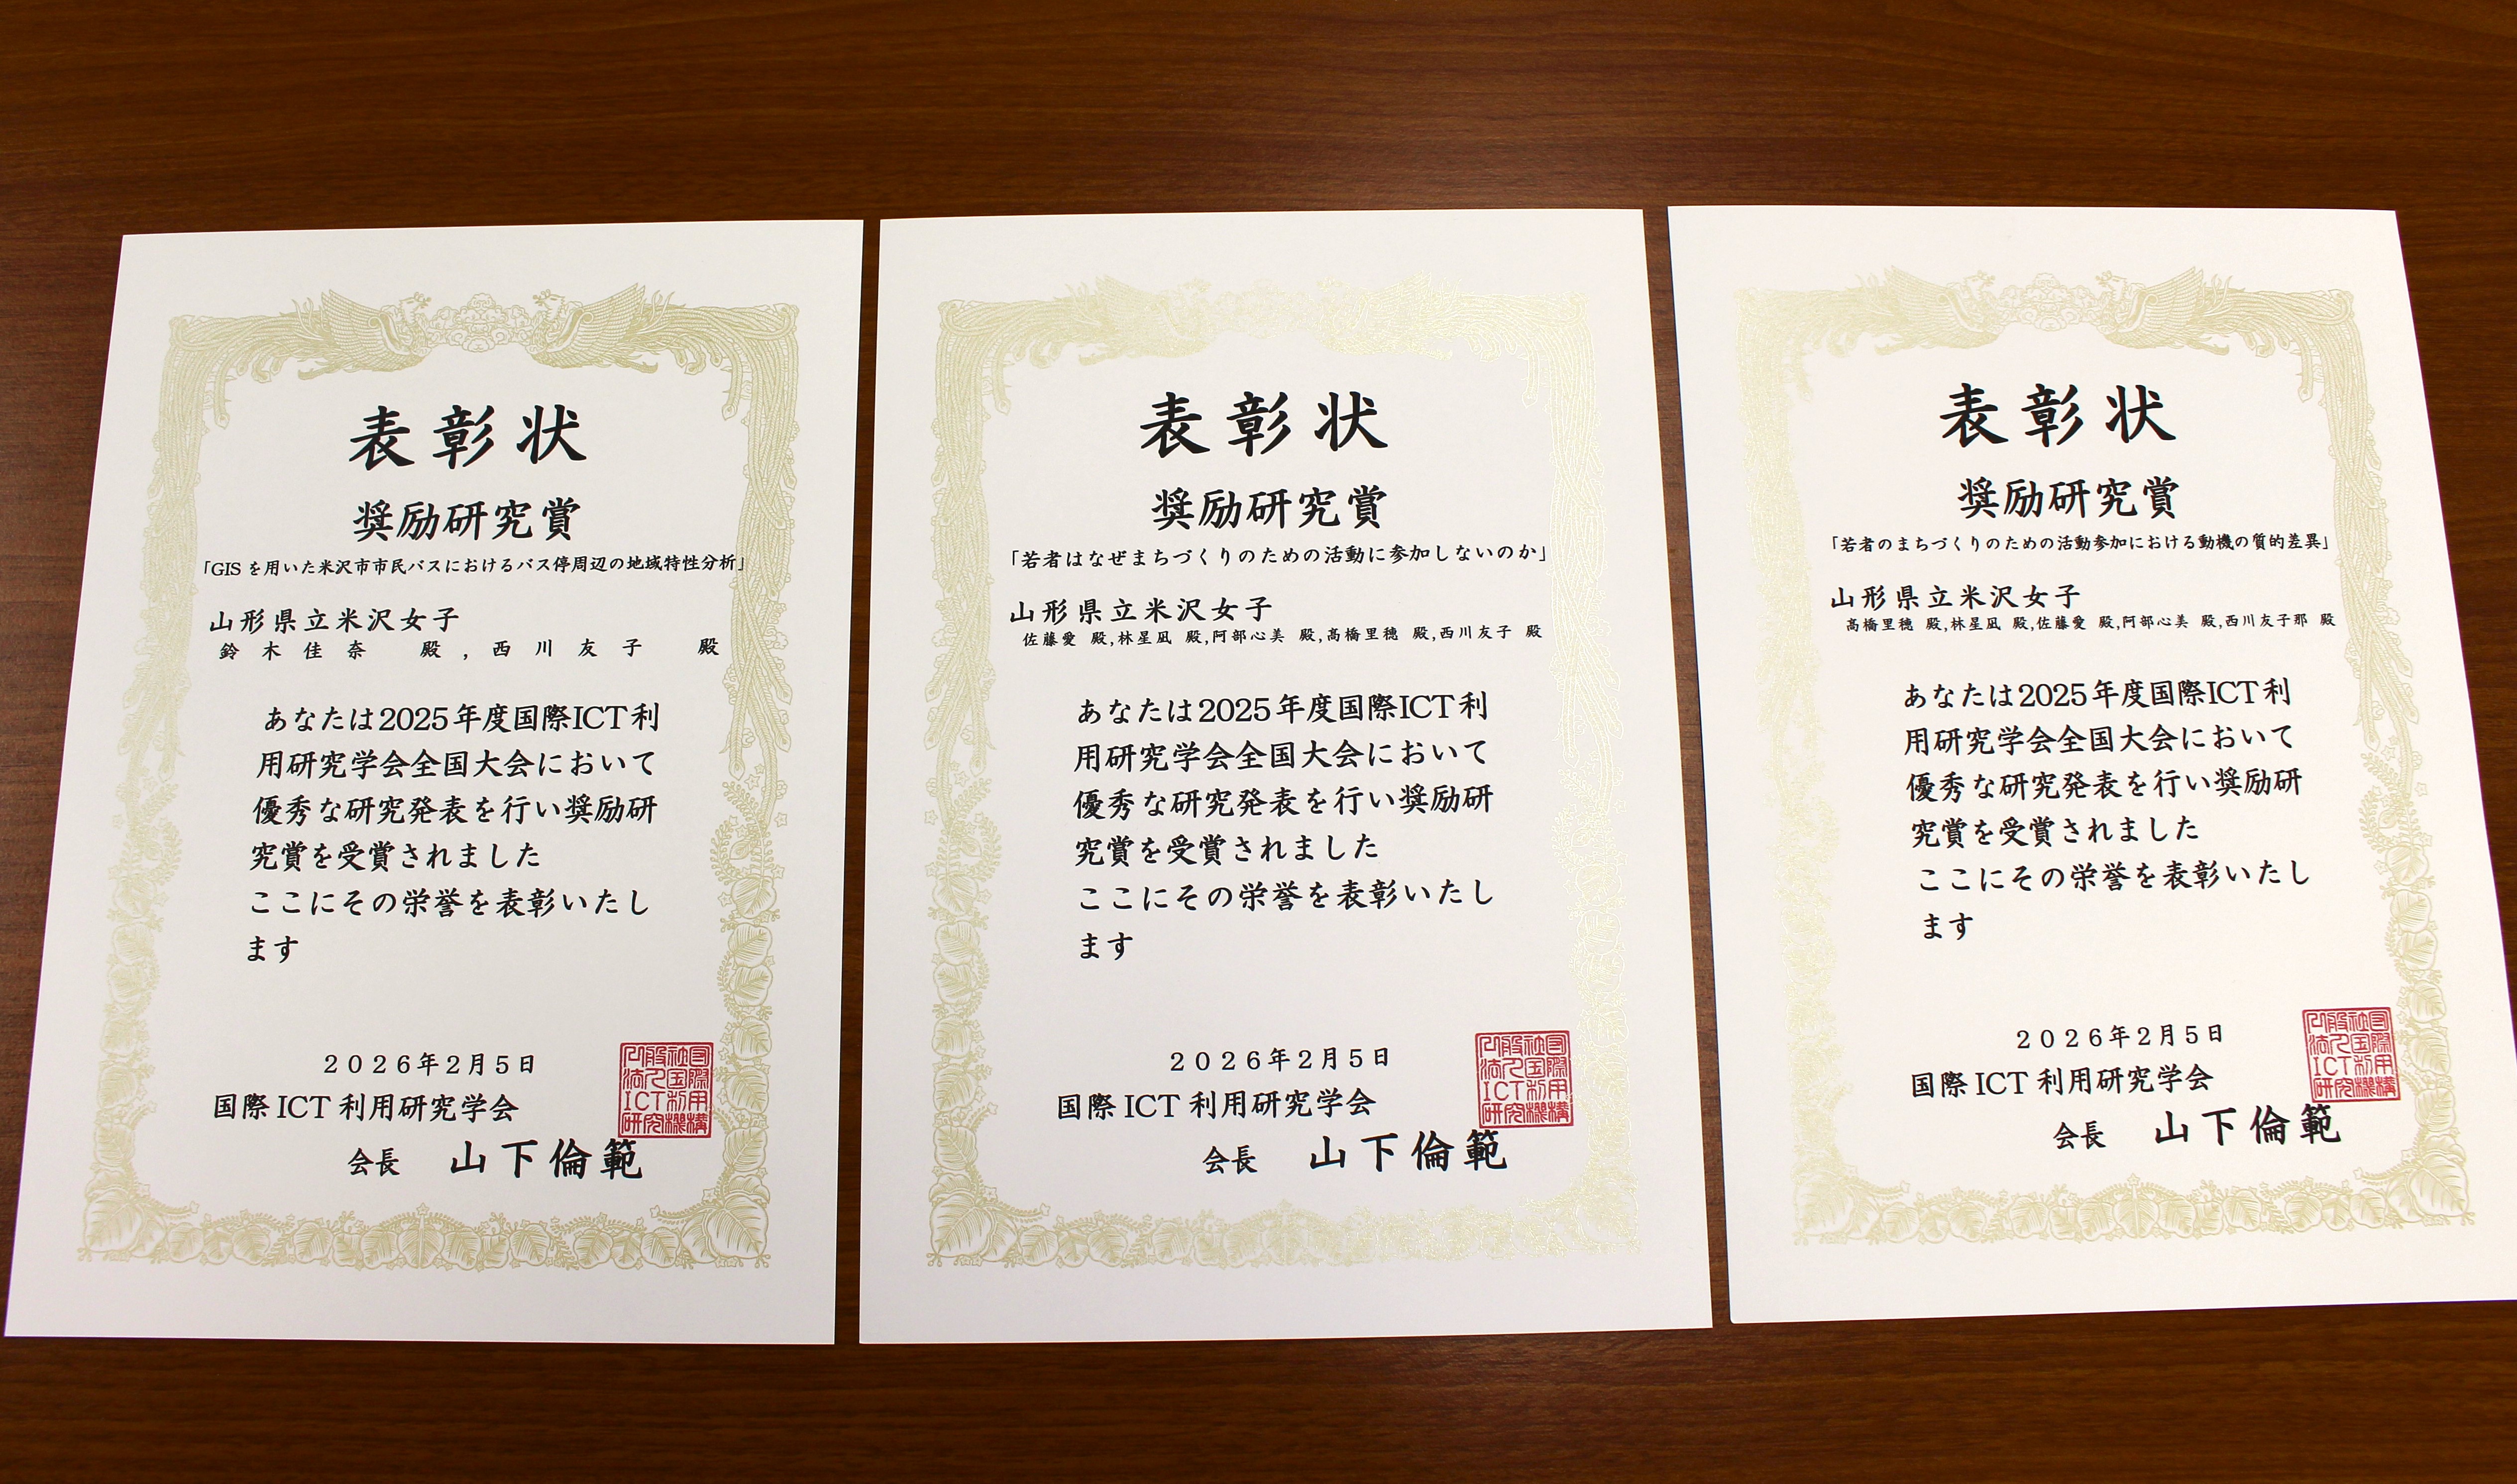 表彰状
奨励研究賞
「GISを用いた米沢市市民バスにおけるバス停周辺の地域特性分析」
山形県立米沢女子
鈴木佳奈 殿,西川友子 殿
あなたは2025年度国際ICT利
用研究学会全国大会において
優秀な研究発表を行い奨励研
究賞を受賞されました
ここにその栄誉を表彰いたし
ます
2026年2月5日
国際ICT利用研究学会
会長 山下倫範
一般社団法人国際ICT利用研究機構
表彰状
奨励研究賞
「若者はなぜまちづくりのための活動に参加しないのか」
山形県立米沢女子
佐藤愛 殿,林星凪 殿,阿部心美 殿,髙橋里穂 殿,西川友子 殿
あなたは2025年度国際ICT利
用研究学会全国大会において
優秀な研究発表を行い奨励研
究賞を受賞されました
ここにその栄誉を表彰いたし
ます
2026年2月5日
国際ICT利用研究学会
会長 山下倫範
一般社団法人国際ICT利用研究機構
表彰状
奨励研究賞
「若者のまちづくりのための活動参加における動機の質的差異」
山形県立米沢女子
髙橋里穂 殿,林星凪 殿,佐藤愛 殿,阿部心美 殿,西川友子那 殿
あなたは2025年度国際ICT利
用研究学会全国大会において
優秀な研究発表を行い奨励研
究賞を受賞されました
ここにその栄誉を表彰いたし
ます
2026年2月5日
国際ICT利用研究学会
会長 山下倫範
一般社団法人国際ICT利用研究機構